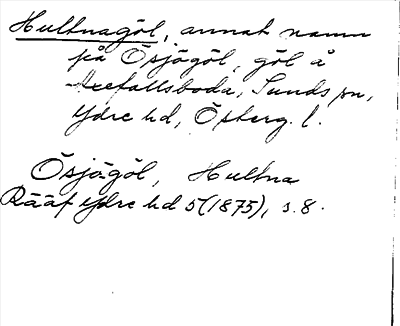 Hultnagöl, annat namn
på Ösjögöl, göl å
Axefallsboda, Sunds sn,
Ydre hd, Österg. l.
Ösjögöl, Hultna
Rääf Ydre hd 5 (1875), s. 8.